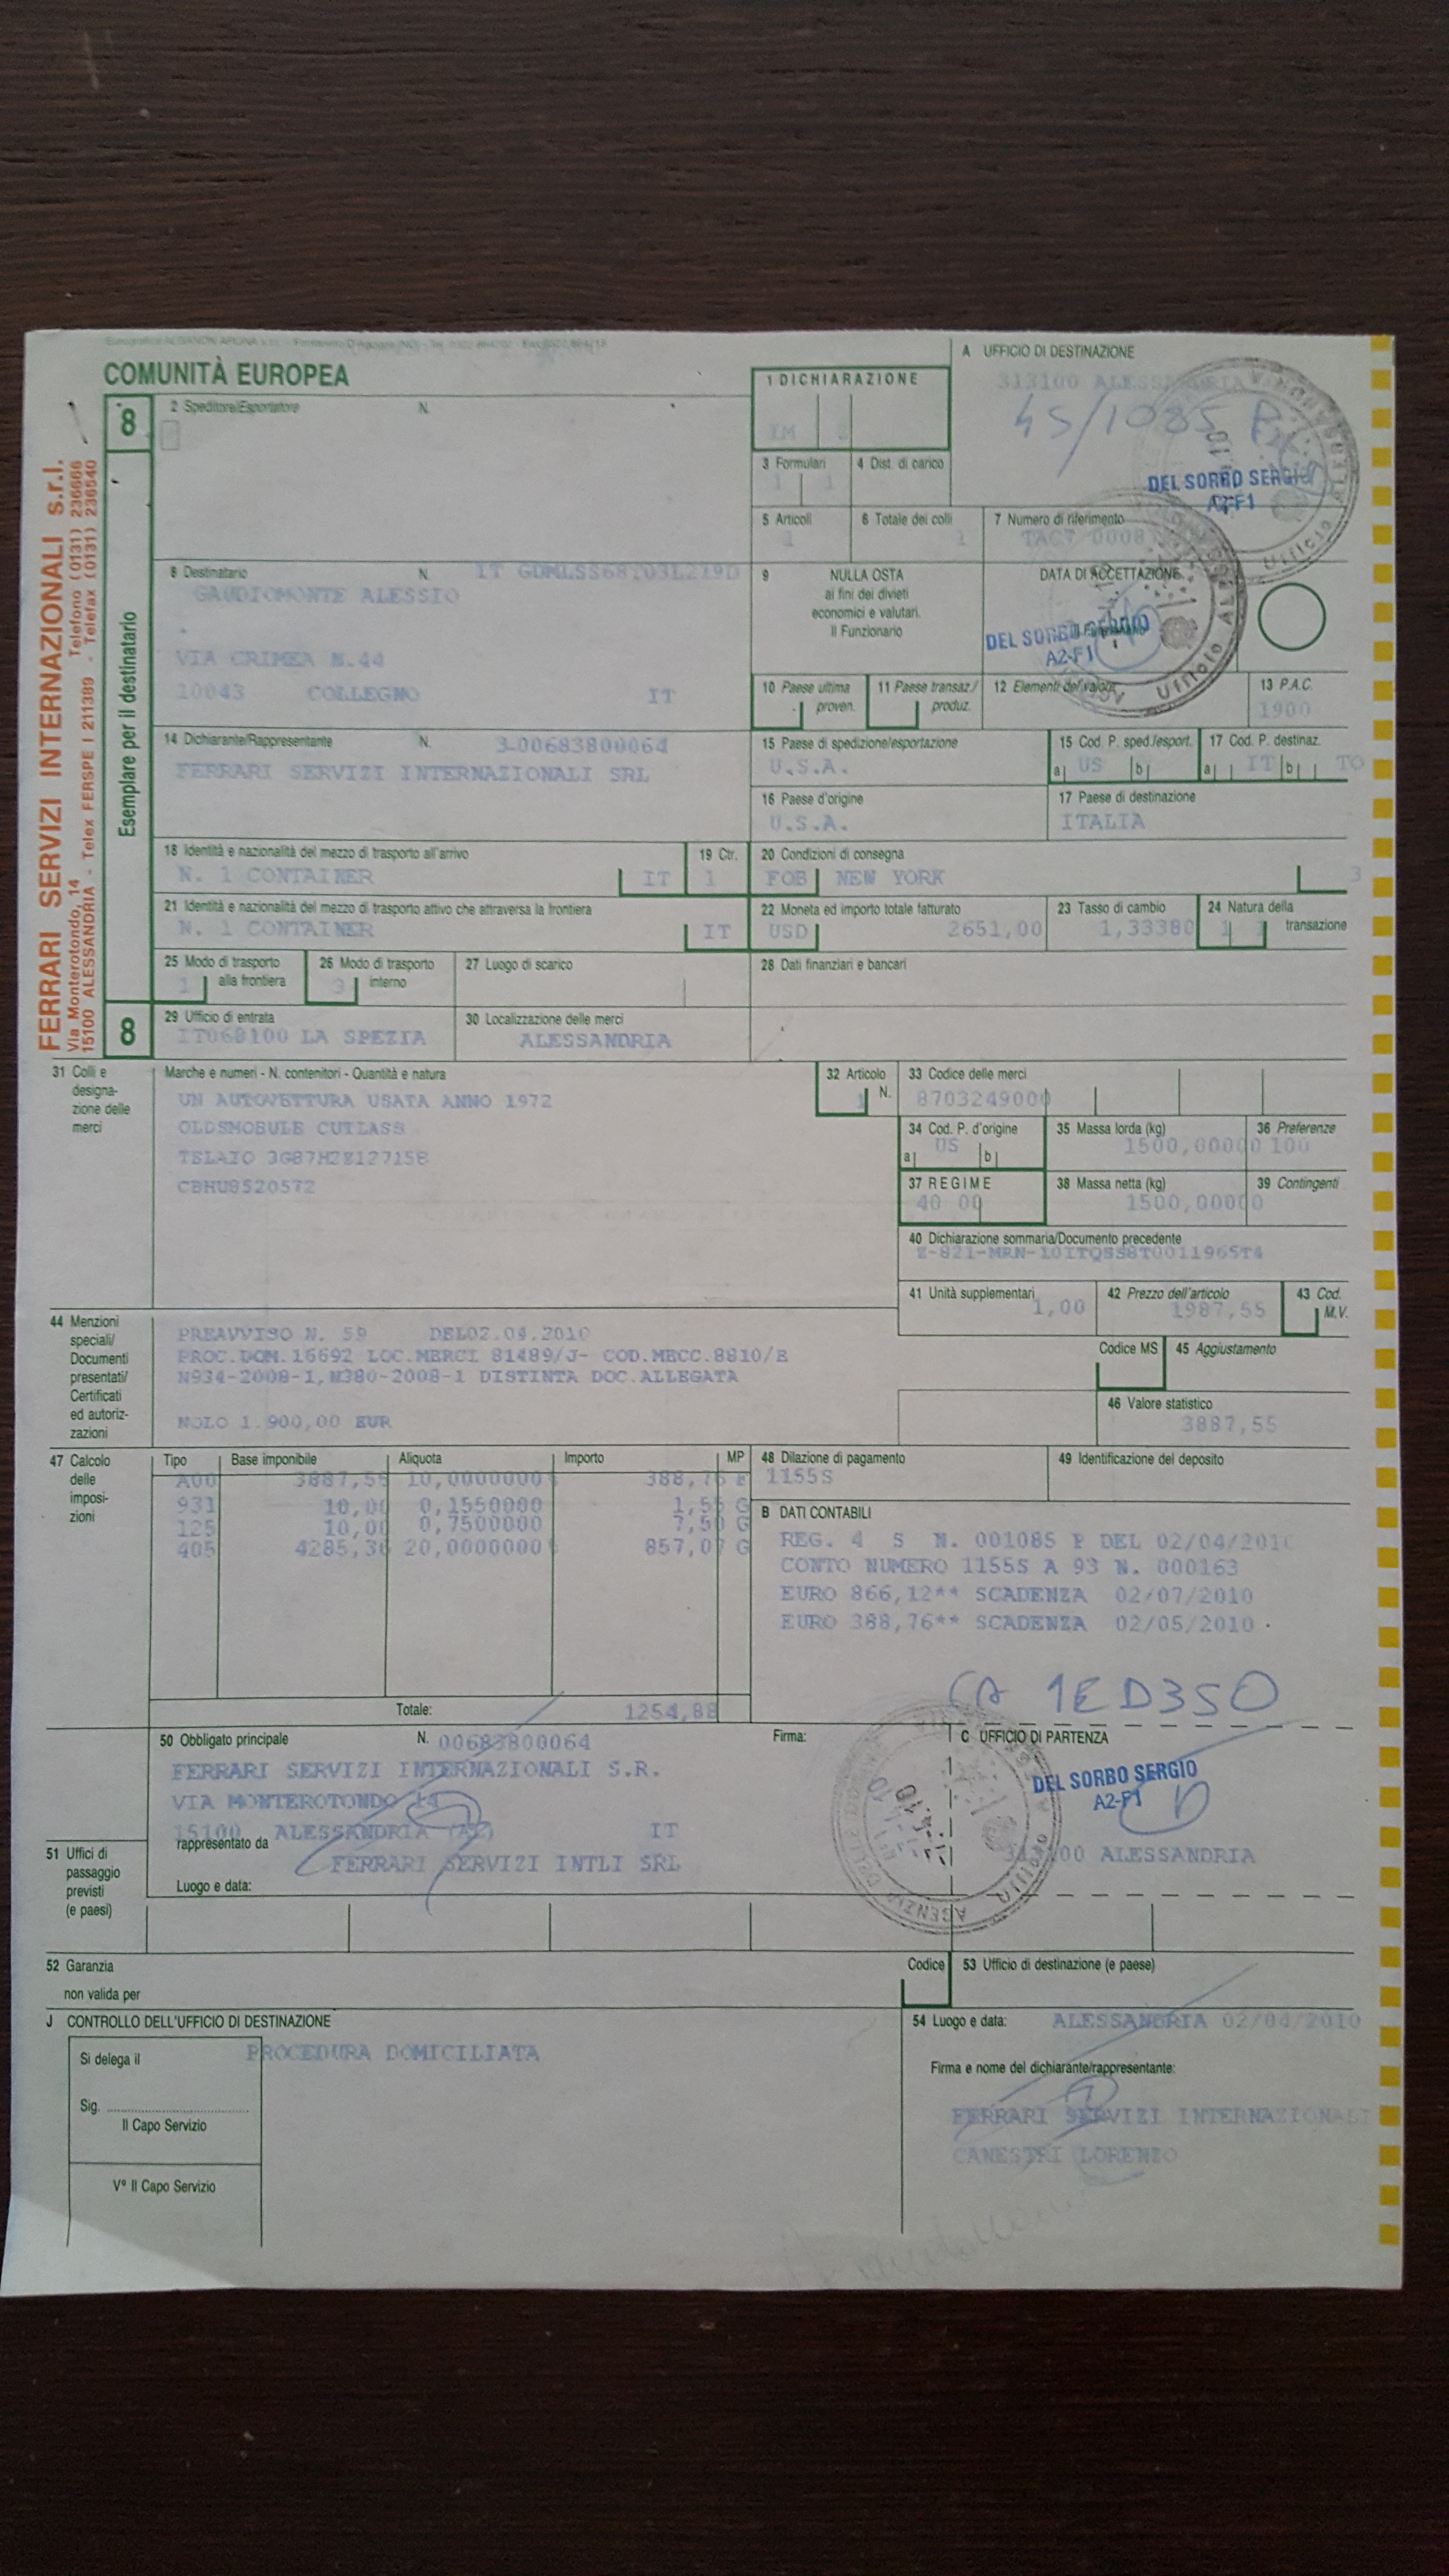 COMUNITÀ EUROPEA
8
Esemplare per il destinatario
8
FERRARI SERVIZI INTERNAZIONALI s.r.l.
Via Monterotondo, 14 Telefono (0131) 236666
15100 ALESSANDRIA - Telex FERSPE I 211389 - Telefax (0131) 236540
2 Speditore/Esportatore N.
1 DICHIARAZIONE
IM
A UFFICIO DI DESTINAZIONE
313100 ALESSANDRIA
4S/1085
DEL SORBO SERGIO
A2-F1
3 Formulari
1 1
4 Dist. di carico
5 Articoli
1
6 Totale dei colli
1
7 Numero di riferimento
TAC7 0008
8 Destinatario N. IT GDMLSS68T03L219D
GAUDIOMONTE ALESSIO
VIA CRIMEA N.44
10043 COLLEGNO IT
9 NULLA OSTA
ai fini dei divieti
economici e valutari.
Il Funzionario
DATA DI ACCETTAZIONE
DEL SORBO SERGIO
A2-F1
10 Paese ultima
proven.
11 Paese transaz./
produz.
12 Elementi del valore
13 P.A.C.
1900
14 Dichiarante/Rappresentante N. 3-00683800064
FERRARI SERVIZI INTERNAZIONALI SRL
15 Paese di spedizione/esportazione
U.S.A.
15 Cod. P. sped./esport.
a US b
17 Cod. P. destinaz.
a IT b TO
16 Paese d'origine
U.S.A.
17 Paese di destinazione
ITALIA
18 Identità e nazionalità del mezzo di trasporto all'arrivo
N. 1 CONTAINER IT
19 Ctr.
1
20 Condizioni di consegna
FOB NEW YORK 3
21 Identità e nazionalità del mezzo di trasporto attivo che attraversa la frontiera
N. 1 CONTAINER IT
22 Moneta ed importo totale fatturato
USD 2651,00
23 Tasso di cambio
1,33380
24 Natura della
transazione
1 1
25 Modo di trasporto
alla frontiera
1
26 Modo di trasporto
interno
3
27 Luogo di scarico
28 Dati finanziari e bancari
29 Ufficio di entrata
IT068100 LA SPEZIA
30 Localizzazione delle merci
ALESSANDRIA
31 Colli e
designa-
zione delle
merci
Marche e numeri - N. contenitori - Quantità e natura
UN AUTOVETTURA USATA ANNO 1972
OLDSMOBULE CUTLASS
TELAIO 3G87H2Z127158
CBHU8520572
32 Articolo
1 N.
33 Codice delle merci
8703249000
34 Cod. P. d'origine
a US b
35 Massa lorda (kg)
1500,00000
36 Preferenze
100
37 REGIME
40 00
38 Massa netta (kg)
1500,00000
39 Contingenti
40 Dichiarazione sommaria/Documento precedente
Z-821-MRN-10ITQSS8T0011965T4
41 Unità supplementari
1,00
42 Prezzo dell'articolo
1987,55
43 Cod.
M.V.
44 Menzioni
speciali/
Documenti
presentati/
Certificati
ed autoriz-
zazioni
PREAVVISO N. 59 DEL02.04.2010
PROC.DOM.16692 LOC.MERCI 81489/J- COD.MECC.8810/E
N934-2008-1,N380-2008-1 DISTINTA DOC.ALLEGATA
NOLO 1.900,00 EUR
Codice MS
45 Aggiustamento
46 Valore statistico
3887,55
47 Calcolo
delle
imposi-
zioni
Tipo Base imponibile Aliquota Importo MP
A00 3887,55 10,0000000% 388,76 E
931 10,00 0,1550000 1,55 G
125 10,00 0,7500000 7,50 G
405 4285,36 20,0000000% 857,07 G
Totale: 1254,88
48 Dilazione di pagamento
1155S
49 Identificazione del deposito
B DATI CONTABILI
REG. 4 S N. 001085 P DEL 02/04/2010
CONTO NUMERO 1155S A 93 N. 000163
EURO 866,12** SCADENZA 02/07/2010
EURO 388,76** SCADENZA 02/05/2010
CA 1ED350
50 Obbligato principale N. 00683800064
FERRARI SERVIZI INTERNAZIONALI S.R.
VIA MONTEROTONDO 14
15100 ALESSANDRIA (AL) IT
rappresentato da
FERRARI SERVIZI INTLI SRL
Luogo e data:
Firma:
C UFFICIO DI PARTENZA
DEL SORBO SERGIO
A2-F1
313100 ALESSANDRIA
51 Uffici di
passaggio
previsti
(e paesi)
52 Garanzia
non valida per
Codice
53 Ufficio di destinazione (e paese)
J CONTROLLO DELL'UFFICIO DI DESTINAZIONE
Si delega il
Sig.
Il Capo Servizio
V° Il Capo Servizio
PROCEDURA DOMICILIATA
54 Luogo e data: ALESSANDRIA 02/04/2010
Firma e nome del dichiarante/rappresentante:
FERRARI SERVIZI INTERNAZIONALI
CANESTRI LORENZO